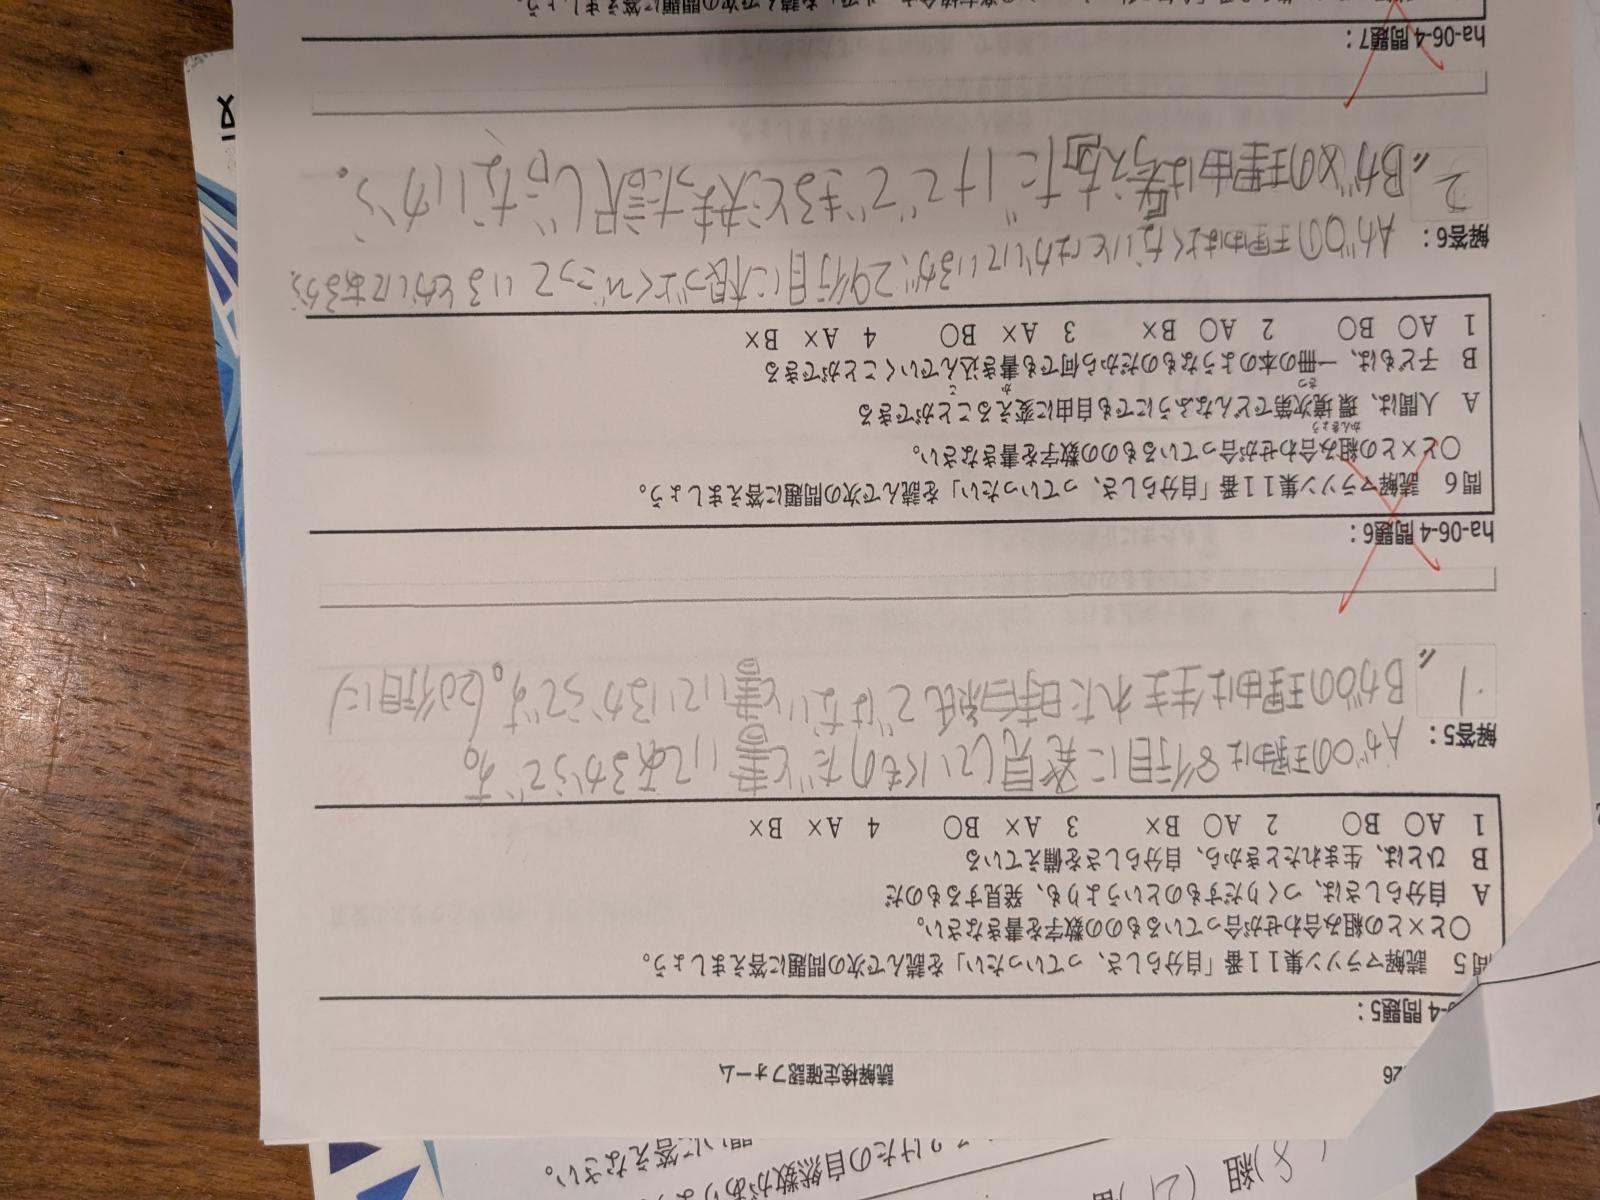 読解検定確認フォーム
-4 問題5：
問5 読解マラソン集11番「自分らしさ、っていったい」を読んで次の問題に答えましょう。
○と×との組み合わせが合っているものの数字を書きなさい。
A 自分らしさは、つくりだすものというよりも、発見するものだ
B ひとは、生まれたときから、自分らしさを備えている
1 A○ B○ 2 A○ B× 3 A× B○ 4 A× B×
解答5：
Aが○の理由は8行目に発見していくものだと書いてあるからです。
1.
Bが○の理由は生まれた時白紙ではないと書いているからです。(20行目に)
ha-06-4 問題6：
問6 読解マラソン集11番「自分らしさ、っていったい」を読んで次の問題に答えましょう。
○と×との組み合わせが合っているものの数字を書きなさい。
かんきょう
A 人間は、環境次第でどんなふうにでも自由に変えることができる
B 子どもは、一冊の本のようなものだから何でも書き込んでいくことができる
1 A○ B○ 2 A○ B× 3 A× B○ 4 A× B×
解答6：
Aが○の理由はよくないとはかいているが、29行目に根づよくのこっているとかいてあるから。
2
Bが×の理由は考え方だけでできると決まった訳じゃないから。
ha-06-4 問題7：
を読んで次の問題に答えましょう。
問いに答えなさい。
2けたの自然数があります